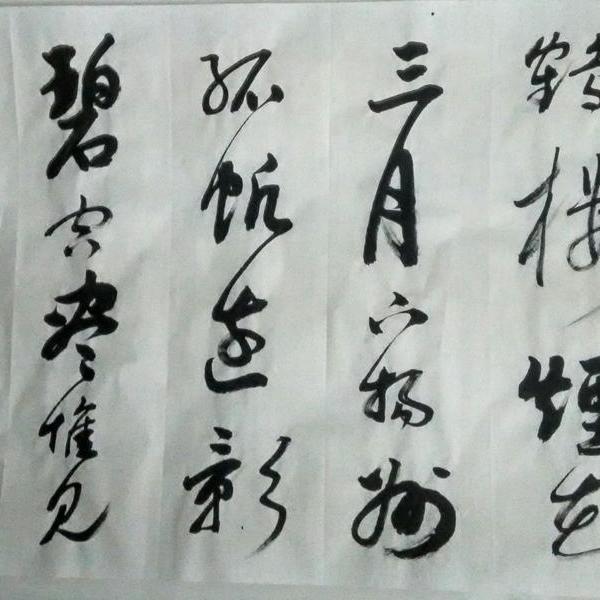 鹤楼煙花
三月下揚州
孤帆远影
碧空尽惟见